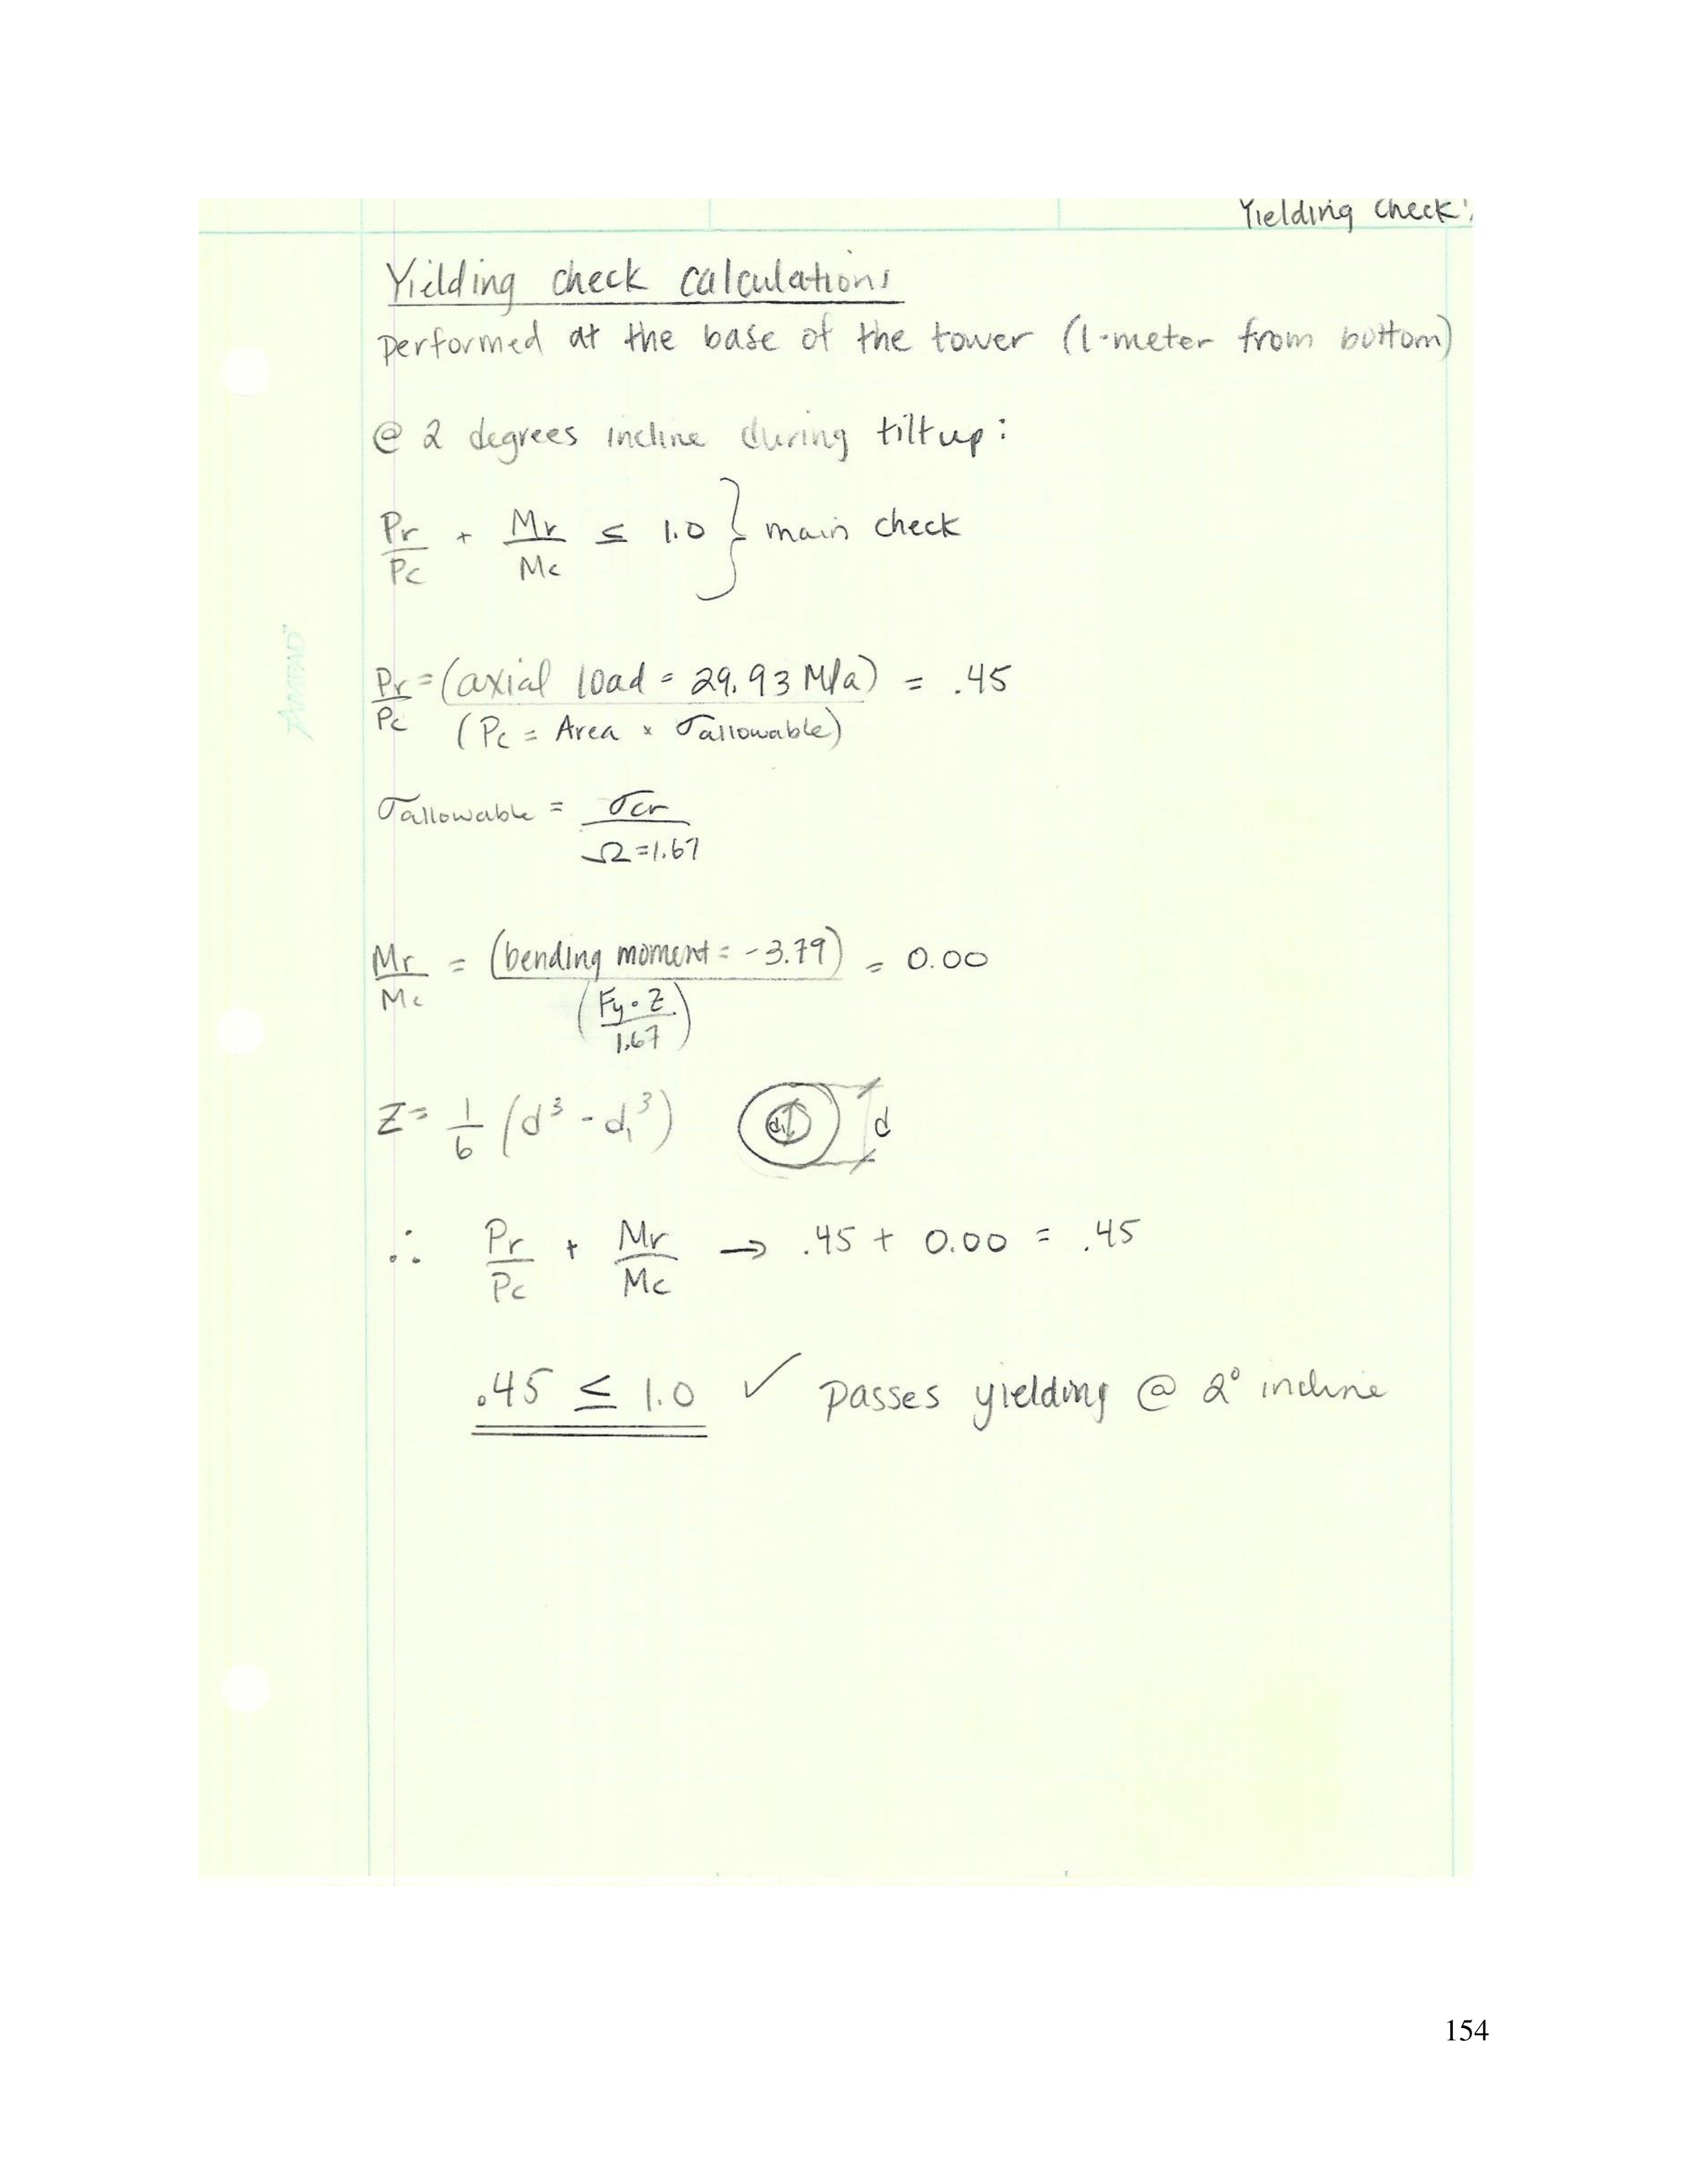 Yielding Check:
Yeilding check calculations
performed at the base of the tower (1-meter from bottom)
@ 2 degrees incline during tilt up:
Pr/Pc + Mr/Mc ≤ 1.0 } main check
Pr/Pc = (axial load = 29.93 MPa)/(Pc = Area × σallowable) = .45
σallowable = σcr/Ω=1.67
AMPAD™
Mr/Mc = (bending moment = -3.79)/(Fy·Z/1.67) = 0.00
Z = 1/6 (d³ - d₁³) d₁ d
∴ Pr/Pc + Mr/Mc → .45 + 0.00 = .45
.45 ≤ 1.0 ✓ passes yielding @ 2° incline
154